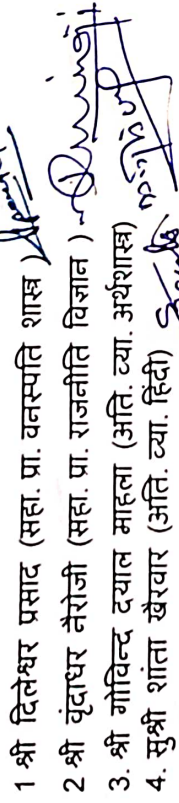 1 श्री दिलेश्वर प्रसाद (सहा. प्रा. वनस्पति शास्त्र )
2 श्री वृंदाधर नैरोजी (सहा. प्रा. राजनीति विज्ञान )
3. श्री गोविन्द दयाल माहला (अति. व्या. अर्थशास्त्र)
4. सुश्री शांता खैरवार (अति. व्या. हिंदी)